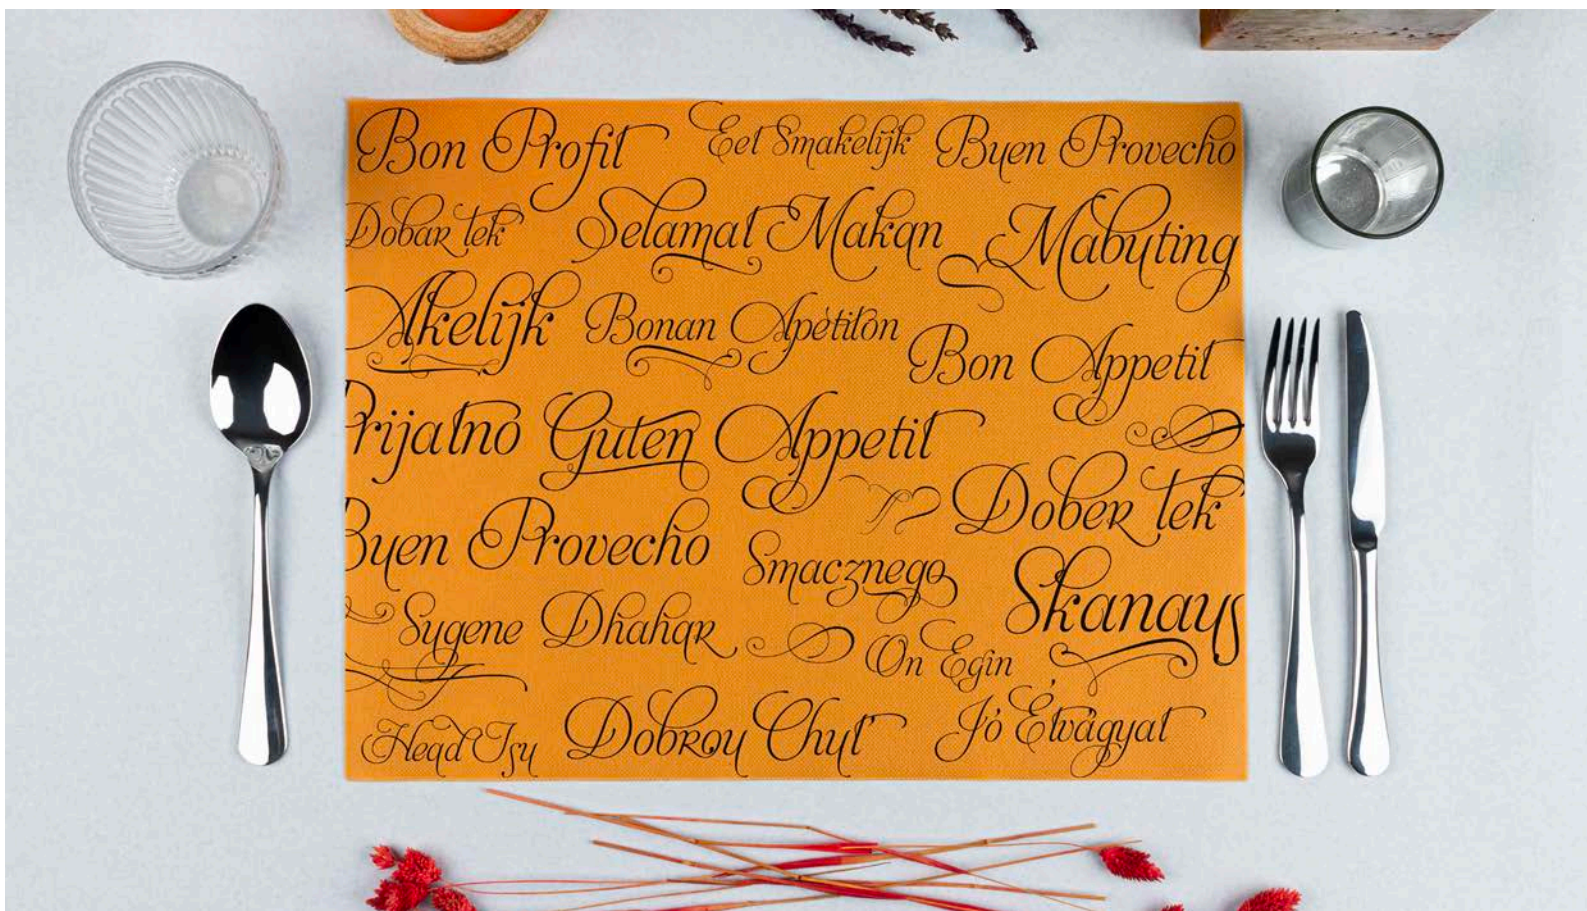 Bon Profit Eet Smakelijk Buen Provecho
Dobar tek Selamat Makan Mabuting
Akelijk Bonan Apétiton Bon Appetit
Prijatno Guten Appetit
Buen Provecho Smacznego Dober tek
Sygene Dhahar On Egin Skanaus
Head Isu Dobroy Chut' Jó Étvágyat